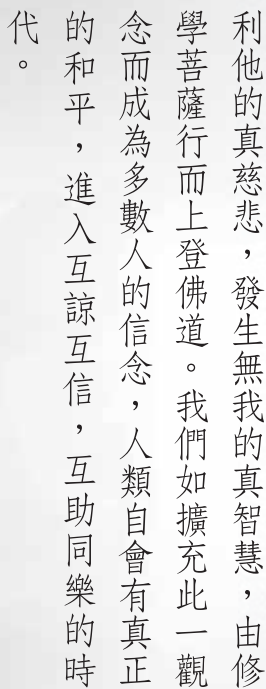 利他的真慈悲，發生無我的真智慧，由修
學菩薩行而上登佛道。我們如擴充此一觀
念而成為多數人的信念，人類自會有真正
的和平，進入互諒互信，互助同樂的時
代。